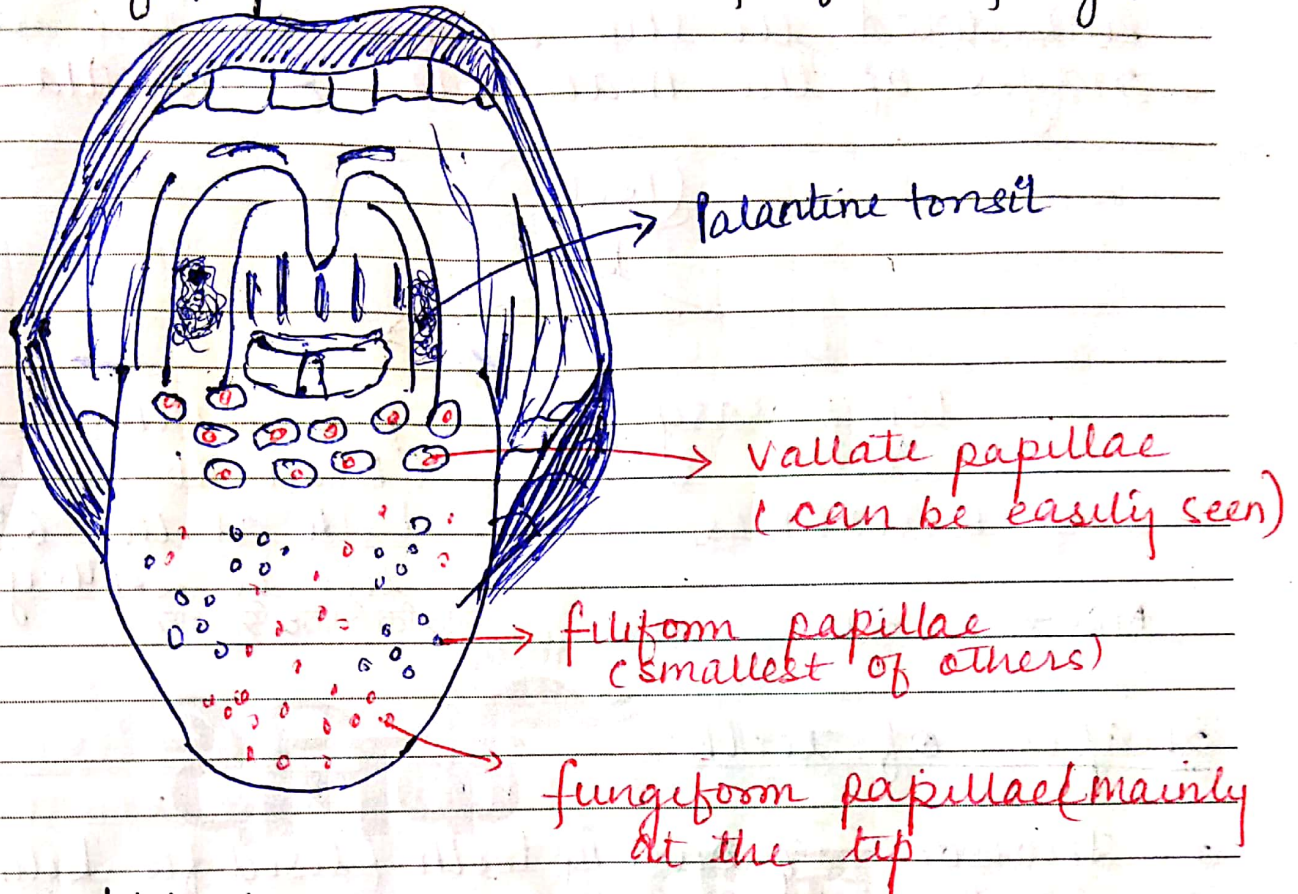 Palantine tonsil
Vallate papillae
(can be easily seen)
filiform papillae
(smallest of others)
fungiform papillae (mainly
at the tip